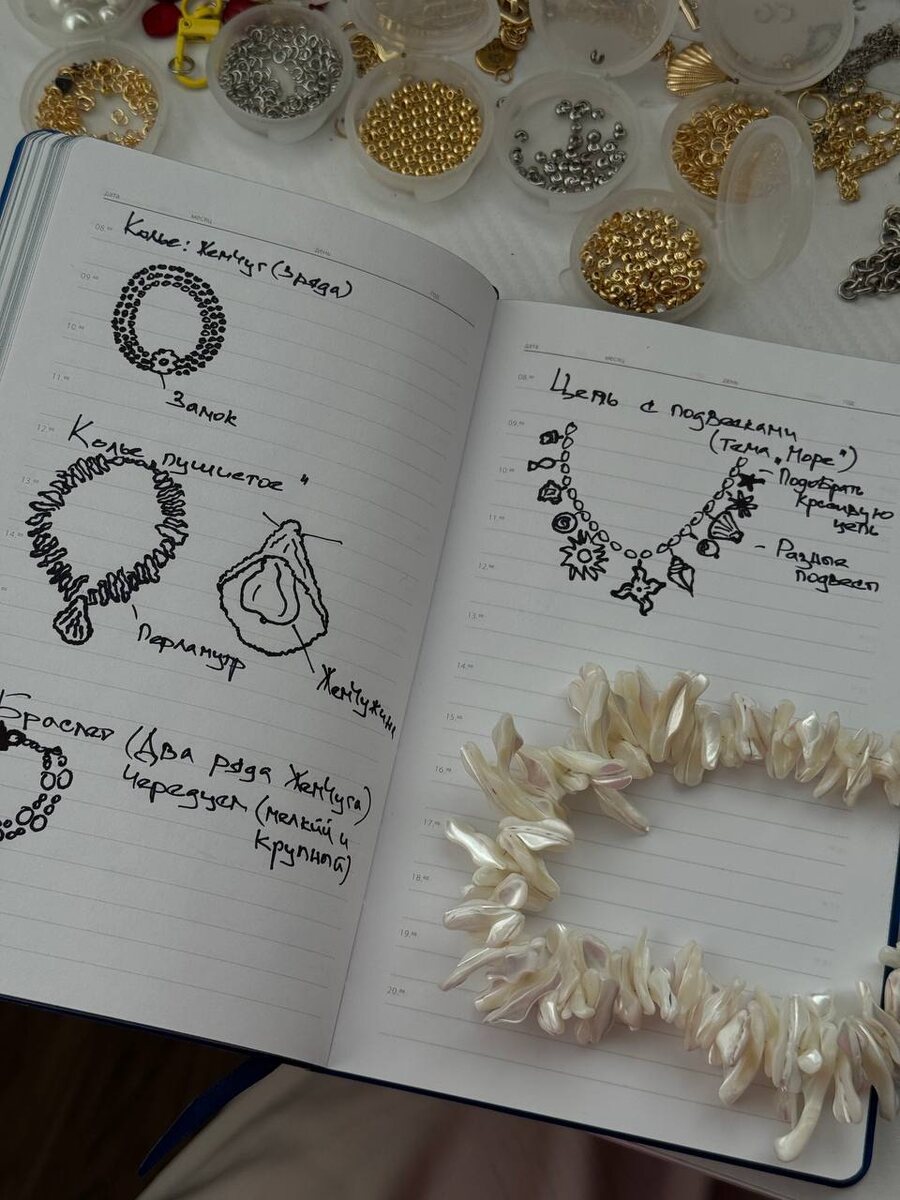 дата месяц день год
08.00
Колье: Жемчуг (3 ряда)
09.00
10.00
11.00
Замок
12.00
Колье „пушистое"
13.00
14.00
Перламутр
Жемчужина
Браслет (Два ряда жемчуга)
чередуем (мелкий и
крупный)
дата месяц день год
08.00
Цепь с подвесками
(тема „Море")
09.00
- Подобрать
красивую
цепь
10.00
11.00
- Разные
подвесы
12.00
13.00
14.00
15.00
16.00
17.00
18.00
19.00
20.00